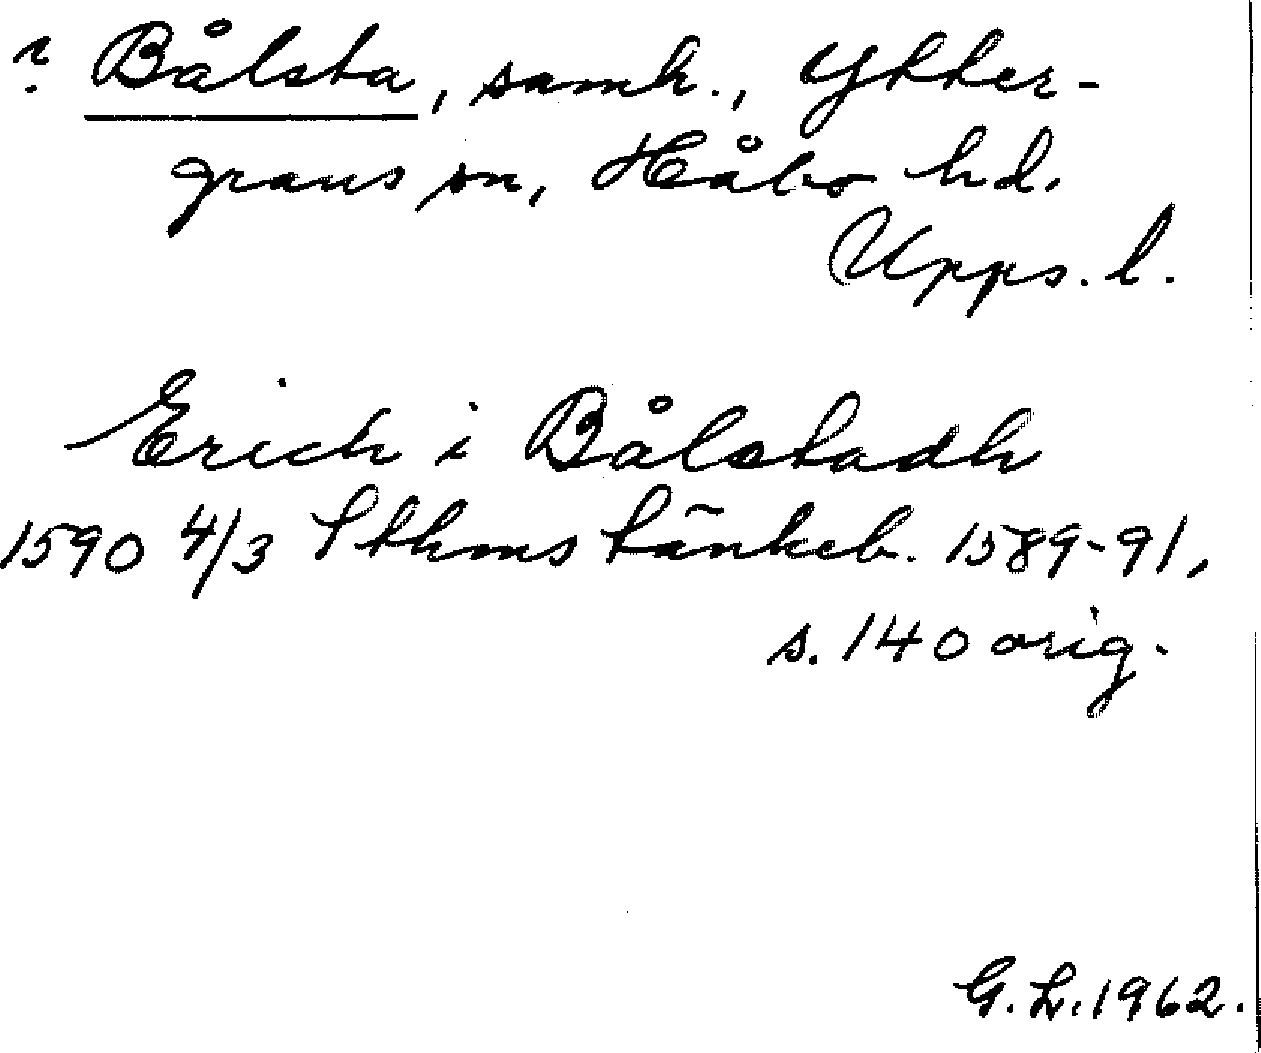 ? Bålsta, samh., Ytter-
grans sn, Håbo hd.
Upps. l.
Erich i Bålstadh
1590 4/3 Sthms tänkeb. 1589-91,
s. 140 orig.
G. L. 1962.